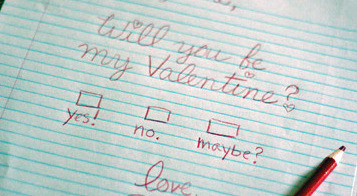 Will you be
my Valentine?
yes! no. maybe?
love